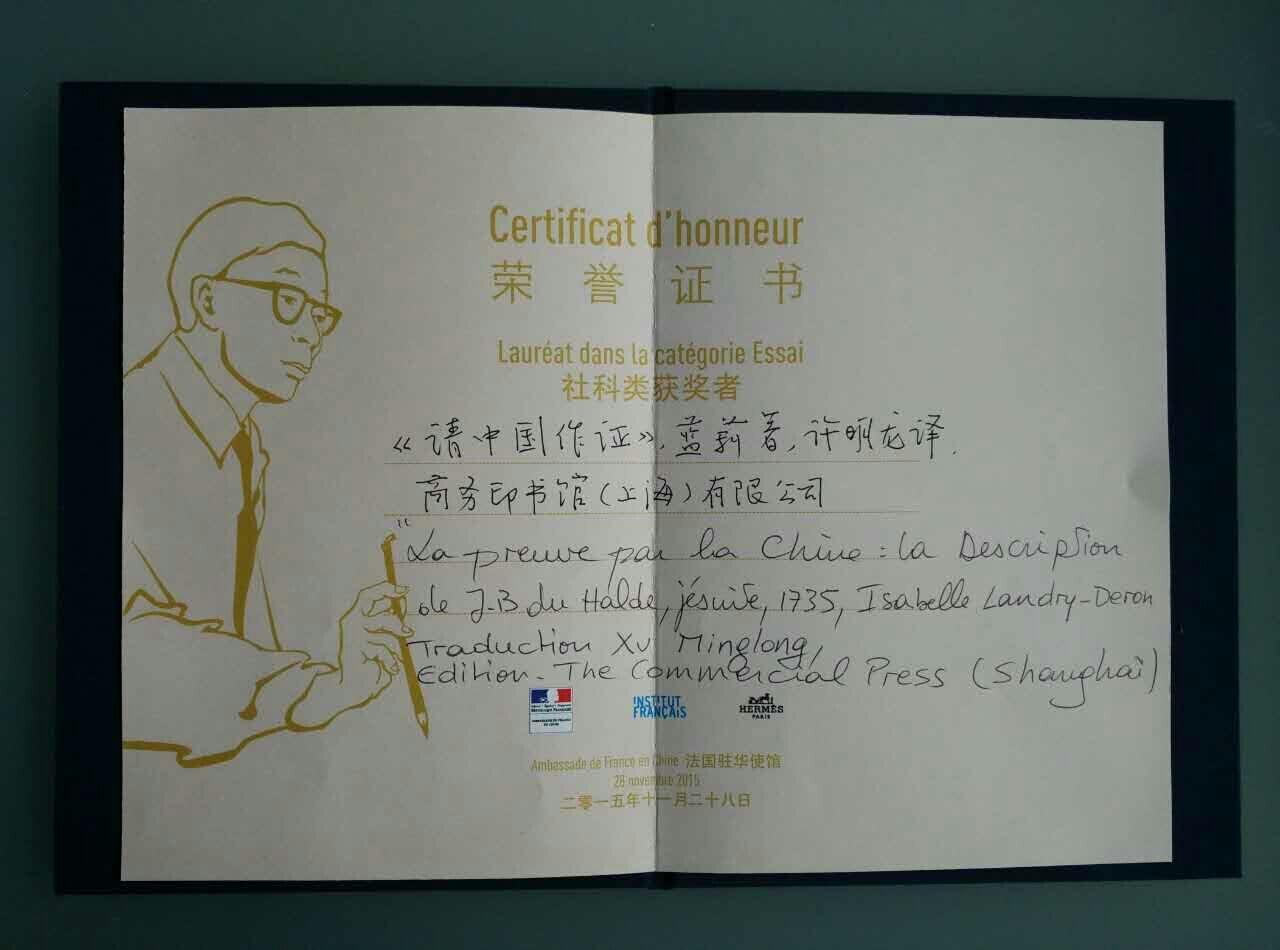 Certificat d'honneur
荣誉证书
Lauréat dans la catégorie Essai
社科类获奖者
《请中国作证》,蓝莉著,许明龙译.
商务印书馆(上海)有限公司
"La preuve par la Chine : la Description
de J-B du Halde, jésuite, 1735, Isabelle Landry-Deron
Traduction Xu Minglong,
Edition. The Commercial Press (Shanghaï)
INSTITUT
FRANÇAIS
HERMÈS
PARIS
Ambassade de France en Chine 法国驻华使馆
28 novembre 2015
二零一五年十一月二十八日